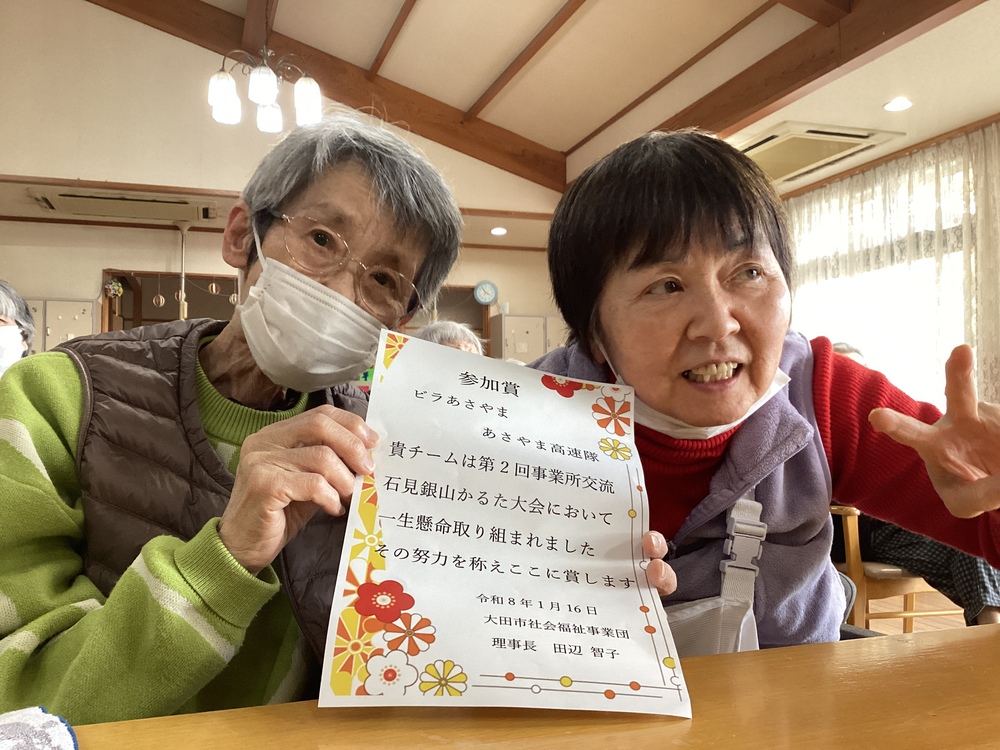 参加賞
ビラあさやま
あさやま高速隊
貴チームは第2回事業所交流
石見銀山かるた大会において
一生懸命取り組まれました
その努力を称えここに賞します
令和8年1月16日
大田市社会福祉事業団
理事長 田辺 智子